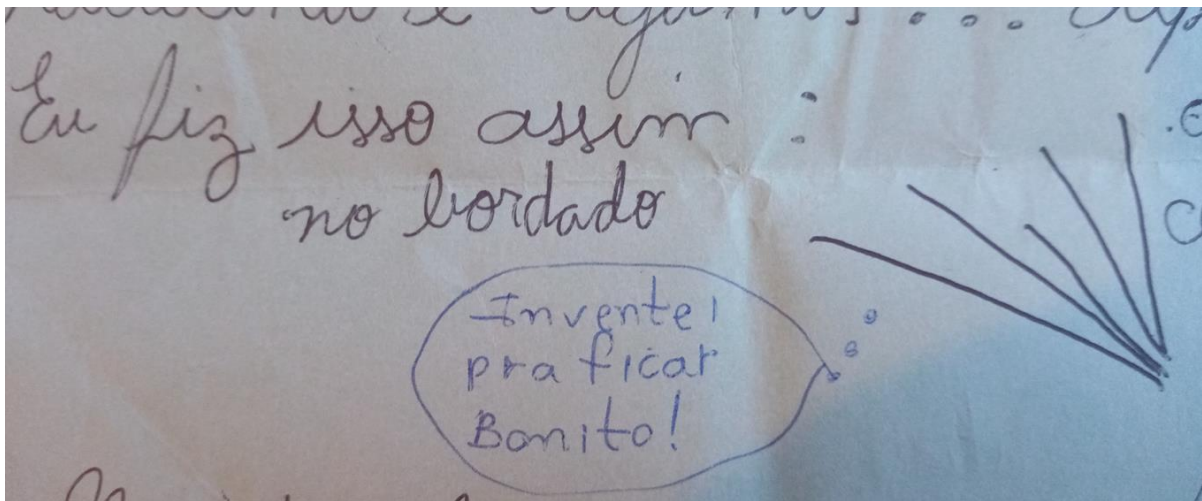 Eu fiz isso assim :
no bordado
Inventei
pra ficar
Bonito!